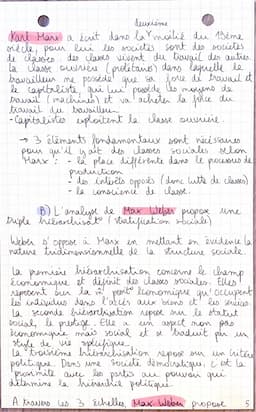 deuxième
Karl Marx a écrit dans la moitié du 19ème
siècle, pour lui les sociétés sont des sociétés
de classes, des classes vivent du travail des autres
la classe ouvrière (prolétaire) dans laquelle le
travailleur ne possède que sa force de travail et
le capitaliste, qui lui possède les moyens de
travail (machines) et va acheter la force du
travail du travailleur.
- Capitalistes exploitent la classe ouvrière.
→ 3 éléments fondamentaux sont nécessaires
pour qu'il y ait des classes sociales selon
Marx : - la place différente dans le processus de
production
- des intérêts opposés (donc lutte de classes)
- la conscience de classe.
B) L'analyse de Max Weber propose une
triple hiérarchisat° (stratification sociale)
Weber s'oppose à Marx en mettant en évidence la
nature tridimensionnelle de la structure sociale.
La première hiérarchisation concerne le champ
économique et définit des classes sociales. Elles
reposent sur la place économique qu'occupent
les individus dans l'accès aux biens et les services.
La seconde hiérarchisation repose sur le statut
social, le prestige. Elle a un aspect non pas
économique mais social et se traduit par un
style de vie spécifique.
La troisième hiérarchisation repose sur un critère
politique. Dans une société démocratique, c'est la
proximité avec les partis au pouvoir qui
détermine la hiérarchie politique.
A travers les 3 échelles, Max Weber propose 5